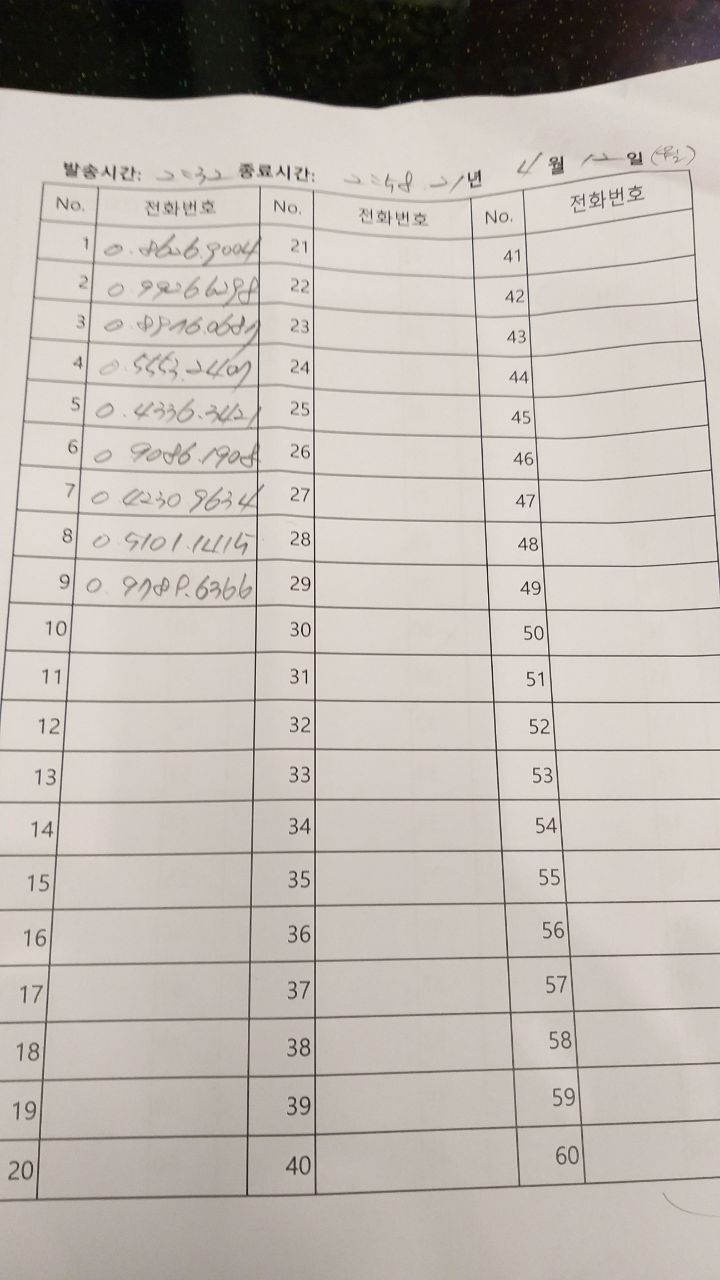 발송시간: 2:32 종료시간: 2:58 21년 4월 12일 (월)
No. 전화번호 No. 전화번호 No. 전화번호
1 0.8626.9004 21 41
2 0 9926 6298 22 42
3 23 43
4 0.5553.2407 24 44
5 0.4336.3421 25 45
6 0 9086.1908 26 46
7 0.4230 9634 27 47
8 0.5101.1415 28 48
9 0.9788.6366 29 49
10 30 50
11 31 51
12 32 52
13 33 53
14 34 54
15 35 55
16 36 56
17 37 57
18 38 58
19 39 59
20 40 60